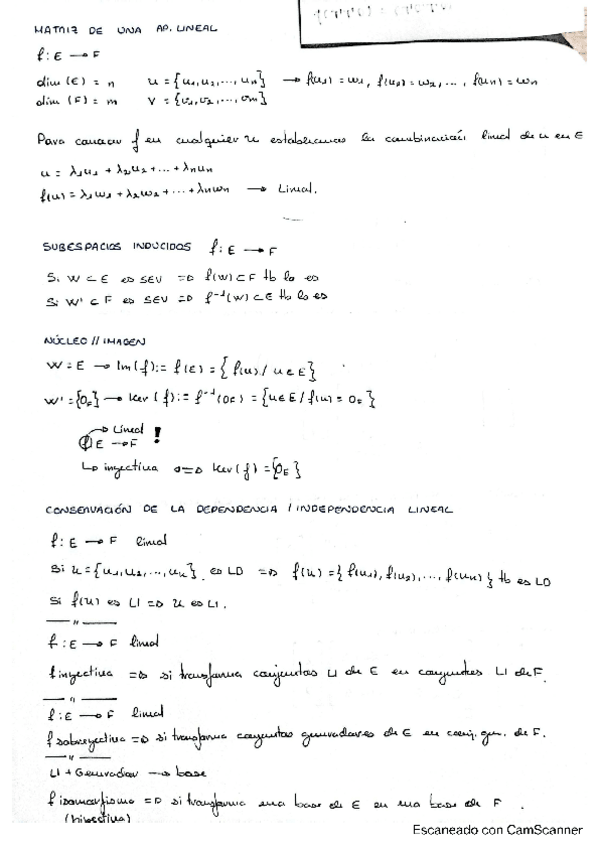 MATRIZ DE UNA AP. LINEAL
f: E → F
dim (E) = n   u = {u₁, u₂, ..., uₙ} → f(u₁) = w₁, f(u₂) = w₂, ..., f(uₙ) = wₙ
dim (F) = m   V = {v₁, v₂, ..., vₘ}
Para conocer f en cualquier u establecemos la combinación lineal de u en E
u = λ₁u₁ + λ₂u₂ + ... + λₙuₙ
f(u) = λ₁w₁ + λ₂w₂ + ... + λₙwₙ → Lineal.
SUBESPACIOS INDUCIDOS f: E → F
Si W ⊂ E es SEV ⇒ f(W) ⊂ F tb lo es
Si W' ⊂ F es SEV ⇒ f⁻¹(W) ⊂ E tb lo es
NÚCLEO // IMAGEN
W = E → Im(f) := f(E) = {f(u) / u ∈ E}
W' = {0_F} → Ker(f) := f⁻¹(0_F) = {u ∈ E / f(u) = 0_F}
→ Lineal !
f: E → F
↳ inyectiva ⇔ Ker(f) = {0_E}
CONSERVACIÓN DE LA DEPENDENCIA / INDEPENDENCIA LINEAL
f: E → F lineal
Si u = {u₁, u₂, ..., uₙ} es LD ⇒ f(u) = {f(u₁), f(u₂), ..., f(uₙ)} tb es LD
Si f(u) es LI ⇒ u es LI.
— " —
f: E → F lineal
f inyectiva ⇒ si transforma conjuntos LI de E en conjuntos LI de F.
— " —
f: E → F lineal
f sobreyectiva ⇒ si transforma conjuntos generadores de E en conj. gen. de F.
— " —
LI + Generador → base
f isomorfismo ⇒ si transforma una base de E en una base de F.
(biyectiva)
Escaneado con CamScanner